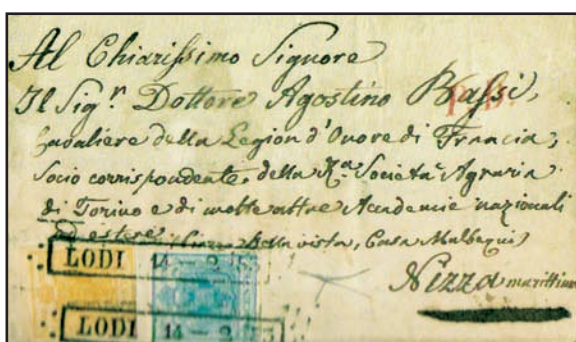 Al Chiarissimo Signore
Il Sig.r Dottore Agostino Bassi,
Cavaliere della Legion d'Onore di Francia,
Socio corrispondente, della R.a Società Agraria
di Torino e di molte altre Accademie nazionali
ed estere, Bella vista, Casa
LODI 14 – 2 53
Nizza marittima
LODI 14 – 2